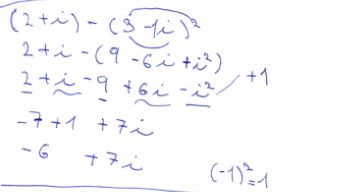 (2+i) - (3-1i)²
2+i - (9 - 6i + i²)
2 + i - 9 + 6i - i² +1
-7+1 +7i
-6 +7i
(-1)²=1